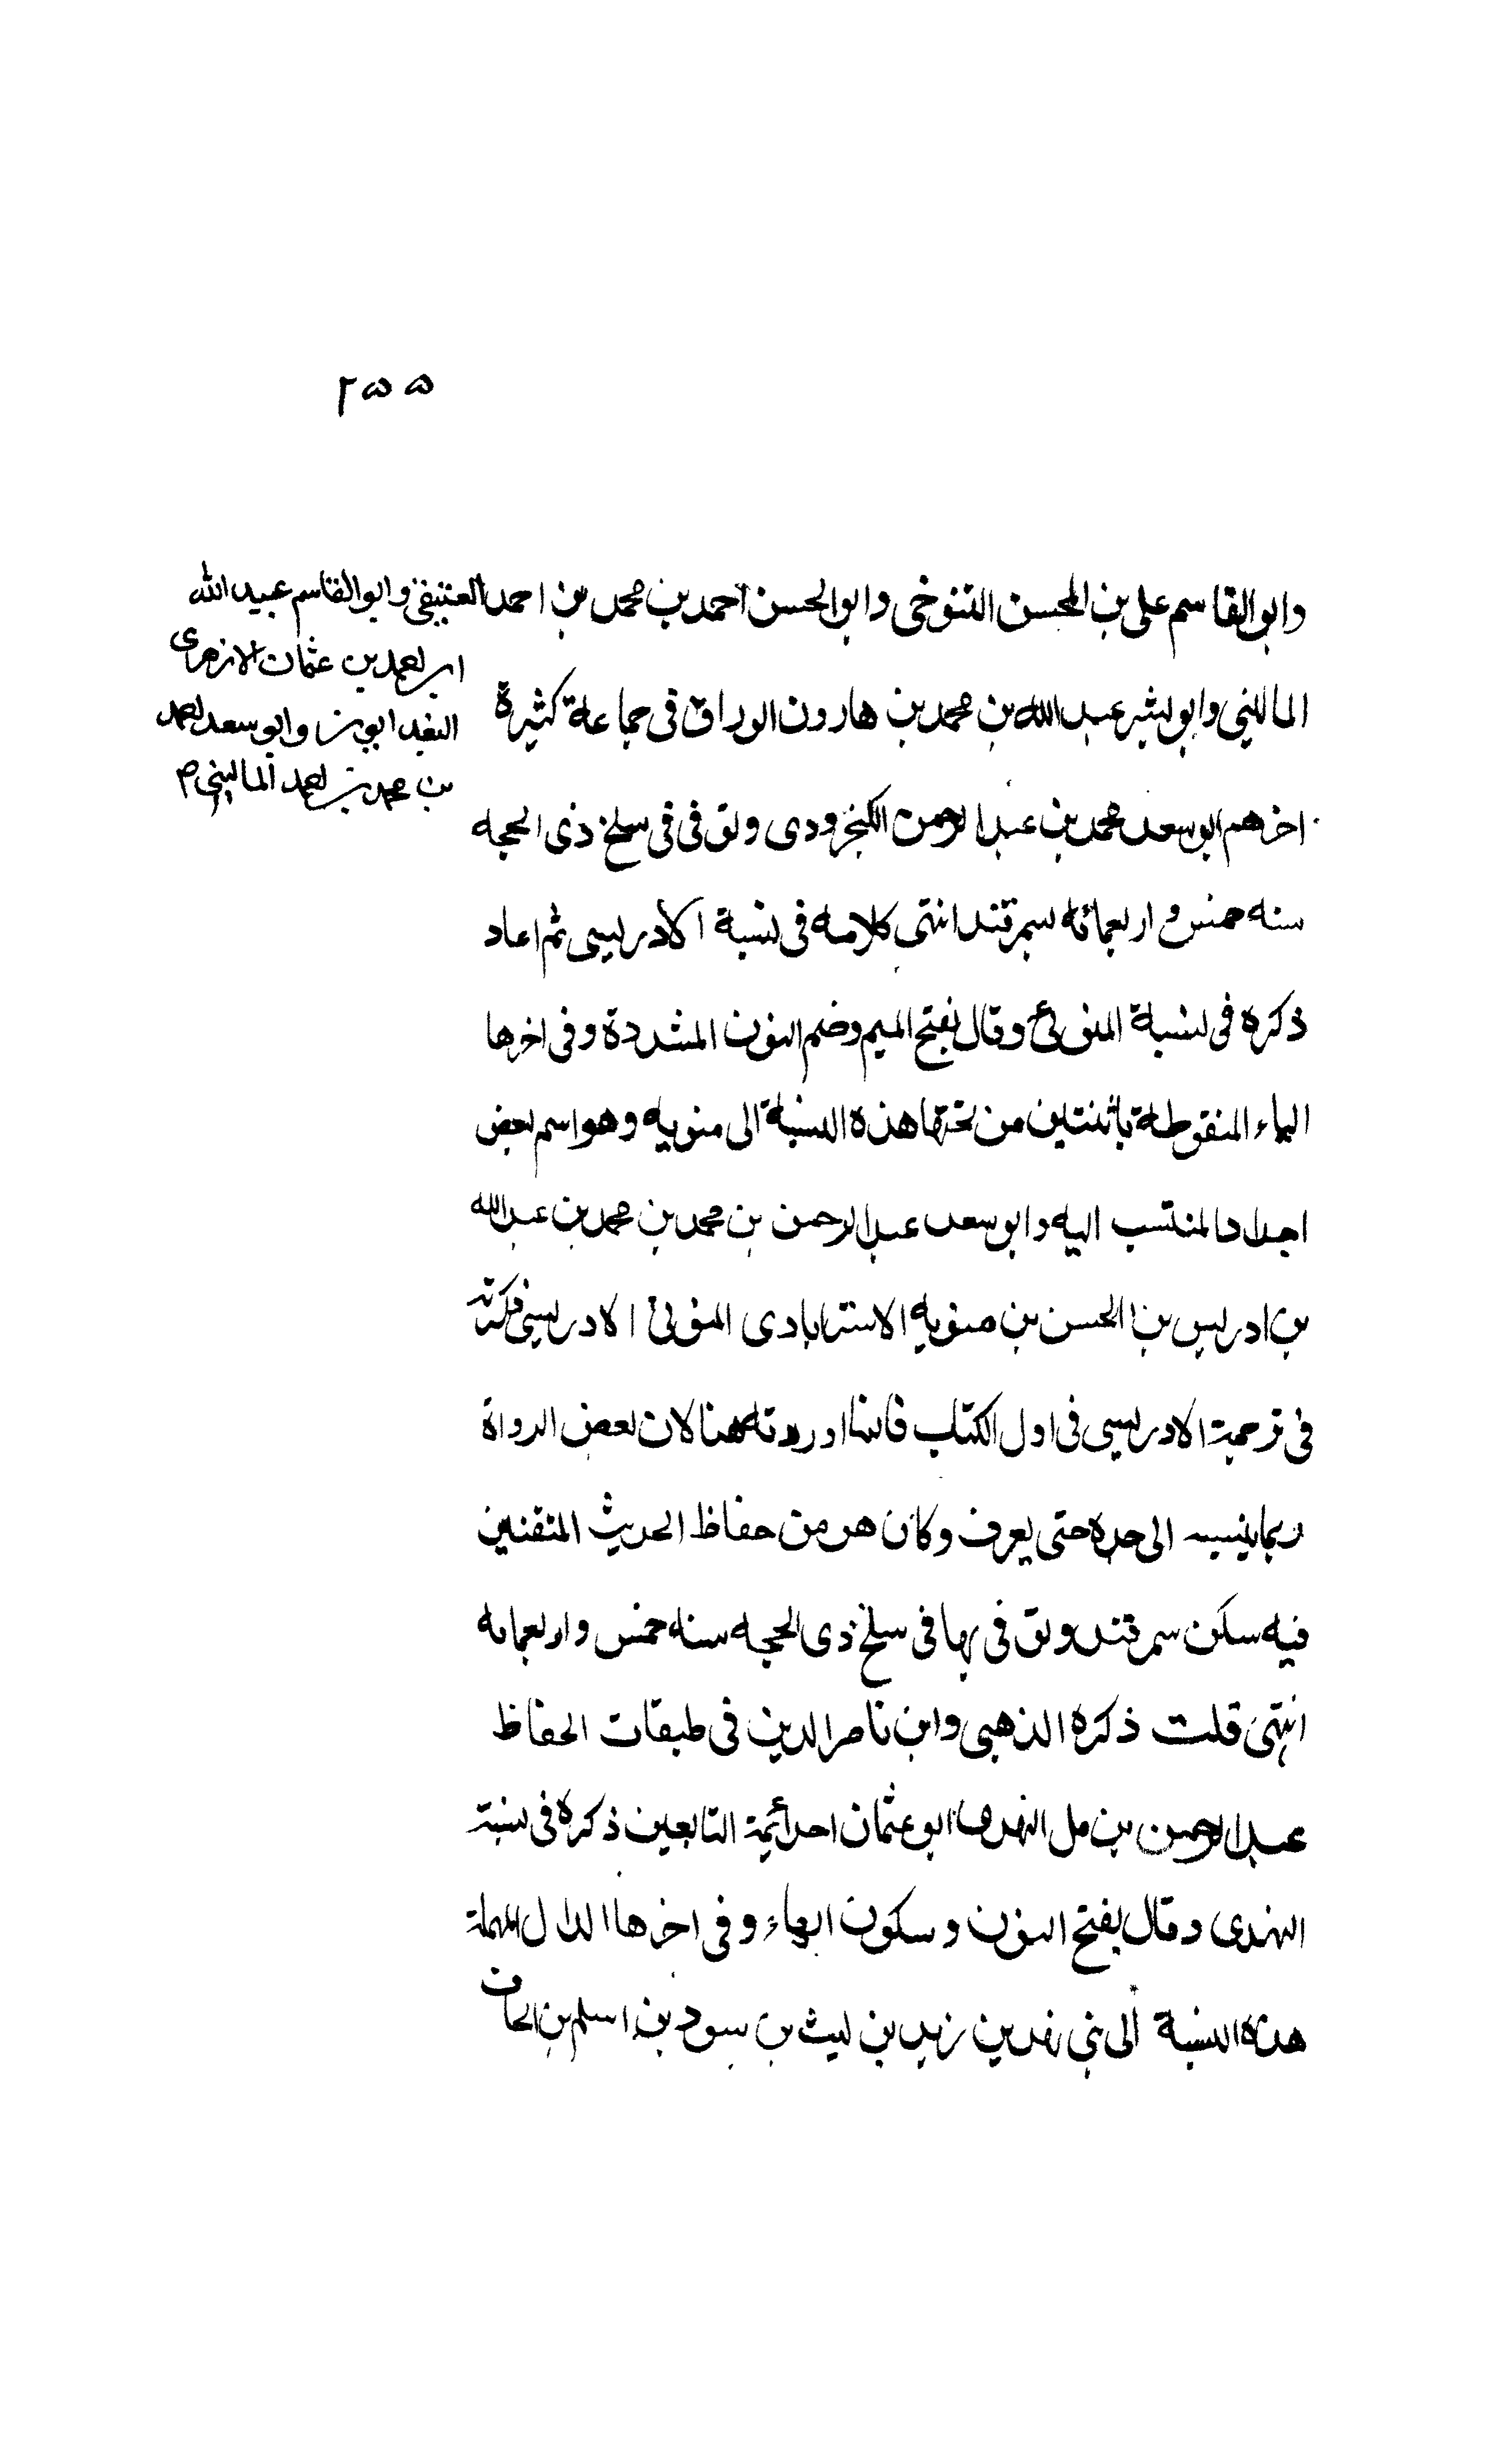 ٢٥٥
وابو القاسم على بن المحسن التنوخى وابو الحسن احمد بن محمد بن احمد العتيقى وابو القاسم عبيد الله
ابن احمد بن عثمان الازهرى
وابو سعد احمد
بن محمد بن احمد المالينى م
المالينى وابو بشر عبد الله بن محمد بن هارون الوراق فى جماعة كثيرة
اخرهم ابو سعد محمد بن عبد الرحمن الكنجرودى وتوفى فى سلخ ذى الحجه
سنه خمس و اربعمائه بسمرقند انتهى كلامه فى نسبة الادريسى ثم اعاد
ذكره فى نسبة المنوئى وقال بفتح الميم وضم النون المشددة وفى اخرها
الياء المنقوطة باثنتين من تحتها هذه النسبة الى منويه وهو اسم لبعض
اجداد المنتسب اليه وابو سعد عبد الرحمن بن محمد بن محمد بن عبد الله
بن ادريس بن الحسن بن منويه الاسترابادى المنوئى الادريسى ذكرته
فى ترجمة الادريسى فى اول الكتاب فانما اوردته هنا لان بعض الرواة
ربما ينسبه الى جده حتى يعرف وكان هر من حفاظ الحديث المتقنين
فيه سكن سمرقند وتوفى بها فى سلخ ذى الحجه سنه خمس واربعمائه
انتهى قلت ذكره الذهبى وابن ناصر الدين فى طبقات الحفاظ
عبد الرحمن بن مل النهدى ابو عثمان احد أئمة التابعين ذكره فى نسبة
النهدى وقال بفتح النون و سكون الهاء وفى اخرها الدال المهملة
هذه النسبة الى بنى نهد بن زيد بن ليث بن سود بن اسلم بن الحاف